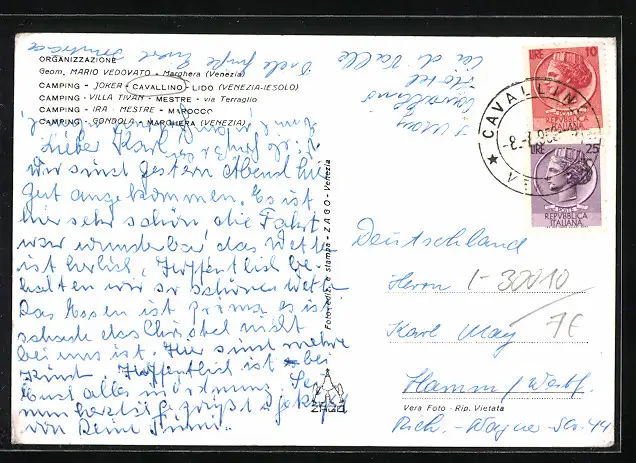 ORGANIZZAZIONE
Geom. MARIO VEDOVATO - Marghera (Venezia)
CAMPING - JOKER - CAVALLINO - LIDO (VENEZIA-IESOLO)
CAMPING - VILLA TIVAN - MESTRE - via Terraglio
CAMPING - IRA - MESTRE - MAROCCO
CAMPING - GONDOLA - MARGHERA (VENEZIA)
Viele Grüße
J. May
Cavallino
Hotel
Cà di Valle
Lieber Karl
wir sind gestern Abend hier
gut angekommen. Es ist
hier sehr schön, die Fahrt
war wunderbar, das Wetter
ist herlich. Hoffentlich be-
halten wir so schönes Wetter
Das Essen ist prima, es ist
schade das Christel nicht
bei uns ist. Hier sind mehre
Kind. Hoffentlich ist bei
Euch alles in ordnung. Sei
nun herzlich gegrüßt u geküßt
von Deine
Foto ediz. e stampa - ZAGO - Venezia
ZAGO
LIRE 10
REPVBBLICA
ITALIANA
LIRE 25
REPVBBLICA
ITALIANA
CAVALLINO
Deutschland
Herrn
1-32010
Karl May
7€
Hamm/Westf.
Vera Foto - Rip. Vietata
Rich.-Wagner-Str. 44